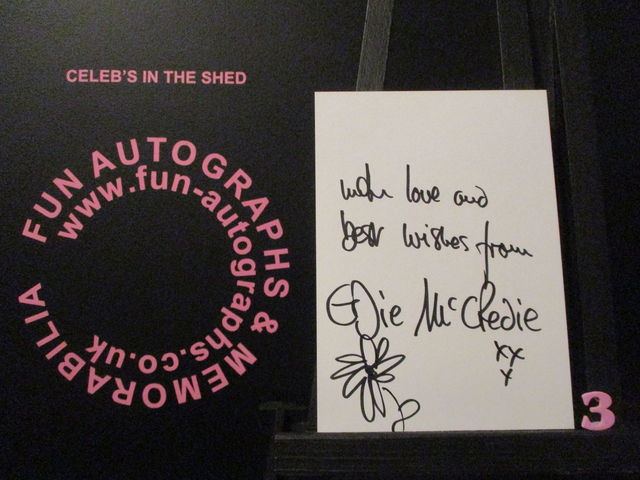 CELEB'S IN THE SHED
FUN AUTOGRAPHS & MEMORABILIA
www.fun-autographs.co.uk
with love and
best wishes from
Edie McCredie
xx
x
3